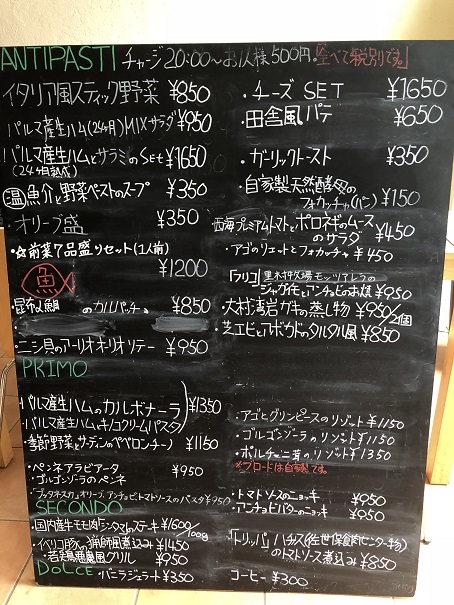 ANTIPASTI チャージ20:00〜お1人様500円。「全べて税別です。」
イタリア風スティック野菜 ¥850
パルマ産生ハム(24ヶ月)MIXサラダ ¥950
パルマ産生ハムとサラミのSet ¥1650
(24ヶ月熟成)
温 魚介と野菜ペーストのスープ ¥350
オリーブ盛 ¥350
・☆前菜7品盛りセット(1人前)
¥1200
・チーズSET ¥1650
・田舎風パテ ¥650
・ガーリックトースト ¥350
・自家製天然酵母の
フォカッチャ(パン) ¥150
西海プレミアムトマトとポロネギのムース
のサラダ ¥450
・アゴのリエットとフォカッチャ ¥450
「フリコ」里木村牧場モッツァレラの
ジャガイモとアンチョビのお焼 ¥950
・大村湾岩ガキの蒸し物 ¥950/2個
・芝エビとアボカドのタルタル風 ¥850
魚
・昆布〆鯛 のカルパッチョ ¥850
・ニシ貝のアーリオオーリオソテー ¥950
PRIMO
・パルマ産生ハムのカルボナーラ
・パルマ産生ハムとキノコクリームパスタ
¥1350
・季節野菜とサーデンのペペロンチーノ ¥1150
・ペンネアラビアータ
・ゴルゴンゾーラのペンネ
¥950
・「プッタネスカ」オリーブ、アンチョビトマトソースのパスタ ¥950
・アゴとグリンピースのリゾット ¥1150
・ゴルゴンゾーラのリゾット ¥1150
・ポルチーニ茸のリゾット ¥1350
※ブロードは自家製です。
・トマトソースのニョッキ ¥950
・アンチョビバターのニョッキ ¥950
SECONDO
・国内産牛モモ肉「シンタマ」のステーキ ¥1600/100g
・イベリコ豚の猟師風煮込み ¥1450
・若鶏悪魔風グリル ¥950
・「トリッパ」ハチノス(佐世保食肉センター物)
のトマトソース煮込み ¥850
DOLCE ・バニラジェラート ¥350
コーヒー ¥300